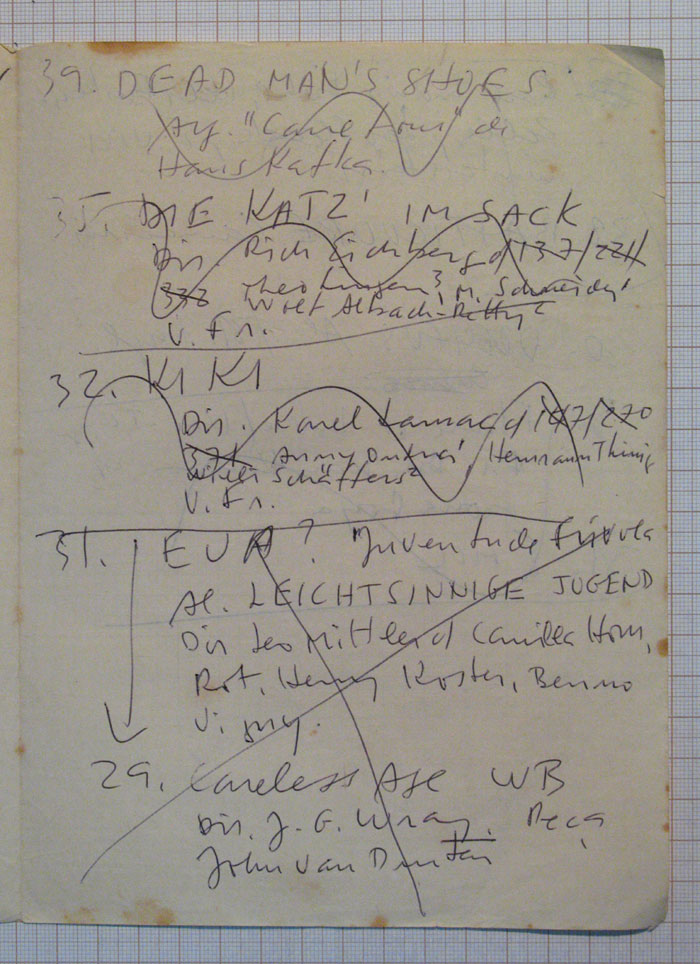 39. DEAD MAN'S SHOES.
Arg. "Carrefour" de
Hans Kafka.
35. DIE KATZ' IM SACK
Dir Rich Eichberg
Theo Lingen³, M. Schneider¹
Wolf Albach-Retty²
V. Fr.
32. KI KI
Dir. Karel Lamac
Anny Ondra¹, Hermann Thimig
Willi Schäffers²
V. Fr.
31. EVA? Juventude Frívola
Al. LEICHTSINNIGE JUGEND
Dir Leo Mittler Camilla Horn,
Rot. Henry Koster, Benno
V. ing.
29. Careless Age WB
Dir. J. G. Wray. Peça
John Van Druten